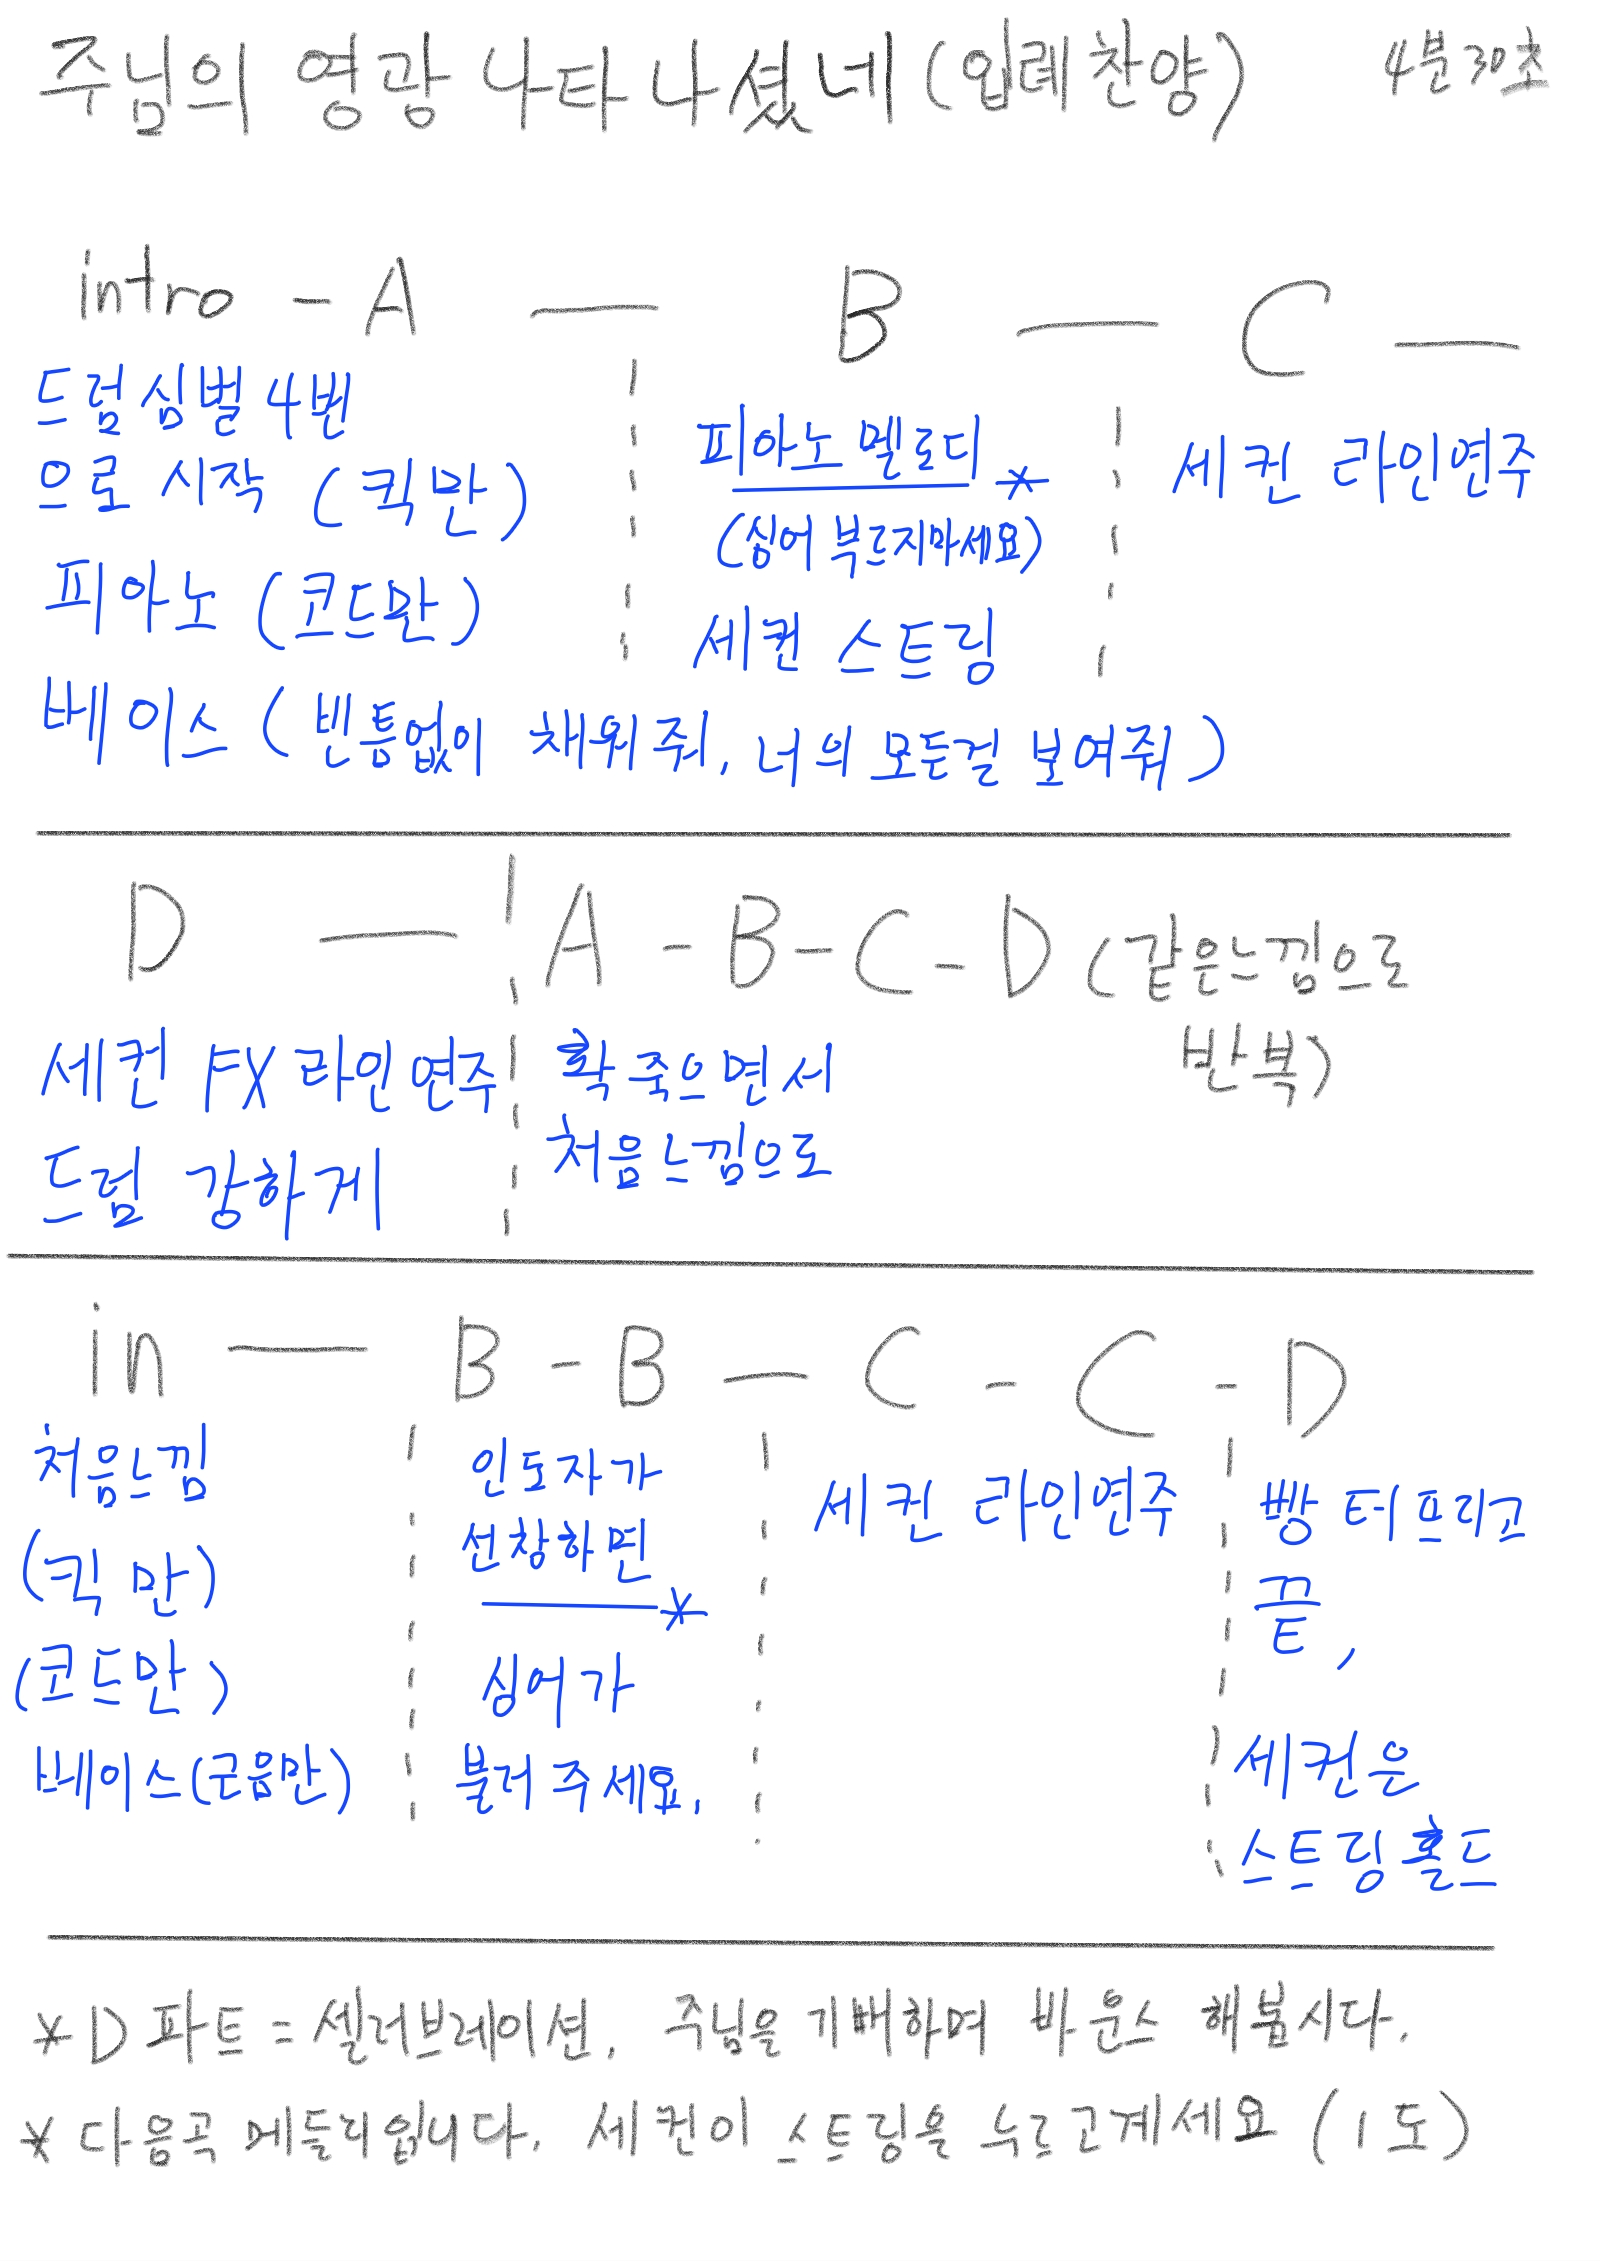 주님의 영광 나타나셨네 (입례찬양) 4분30초
intro - A — B — C —
드럼심벌 4번
으로 시작 (킥만)
피아노 (코드만)
피아노 멜로디 *
(싱어 부르지마세요)
세컨 스트링
세컨 라인연주
베이스 (빈틈없이 채워줘, 너의 모든걸 보여줘)
D — A - B - C - D (같은느낌으로
반복)
세컨 FX 라인연주
드럼 강하게
확 죽으면서
처음느낌으로
in — B - B — C - C - D
처음느낌
(킥만)
(코드만)
베이스(근음만)
인도자가
선창하면 *
싱어가
불러주세요.
세컨 라인연주
빵 터프리고
끝,
세컨은
스트링홀드
* D파트 = 셀러브레이션, 주님을 기뻐하며 바운스 해봅시다.
* 다음곡 메들리입니다. 세컨이 스트링을 누르고계세요 (1도)